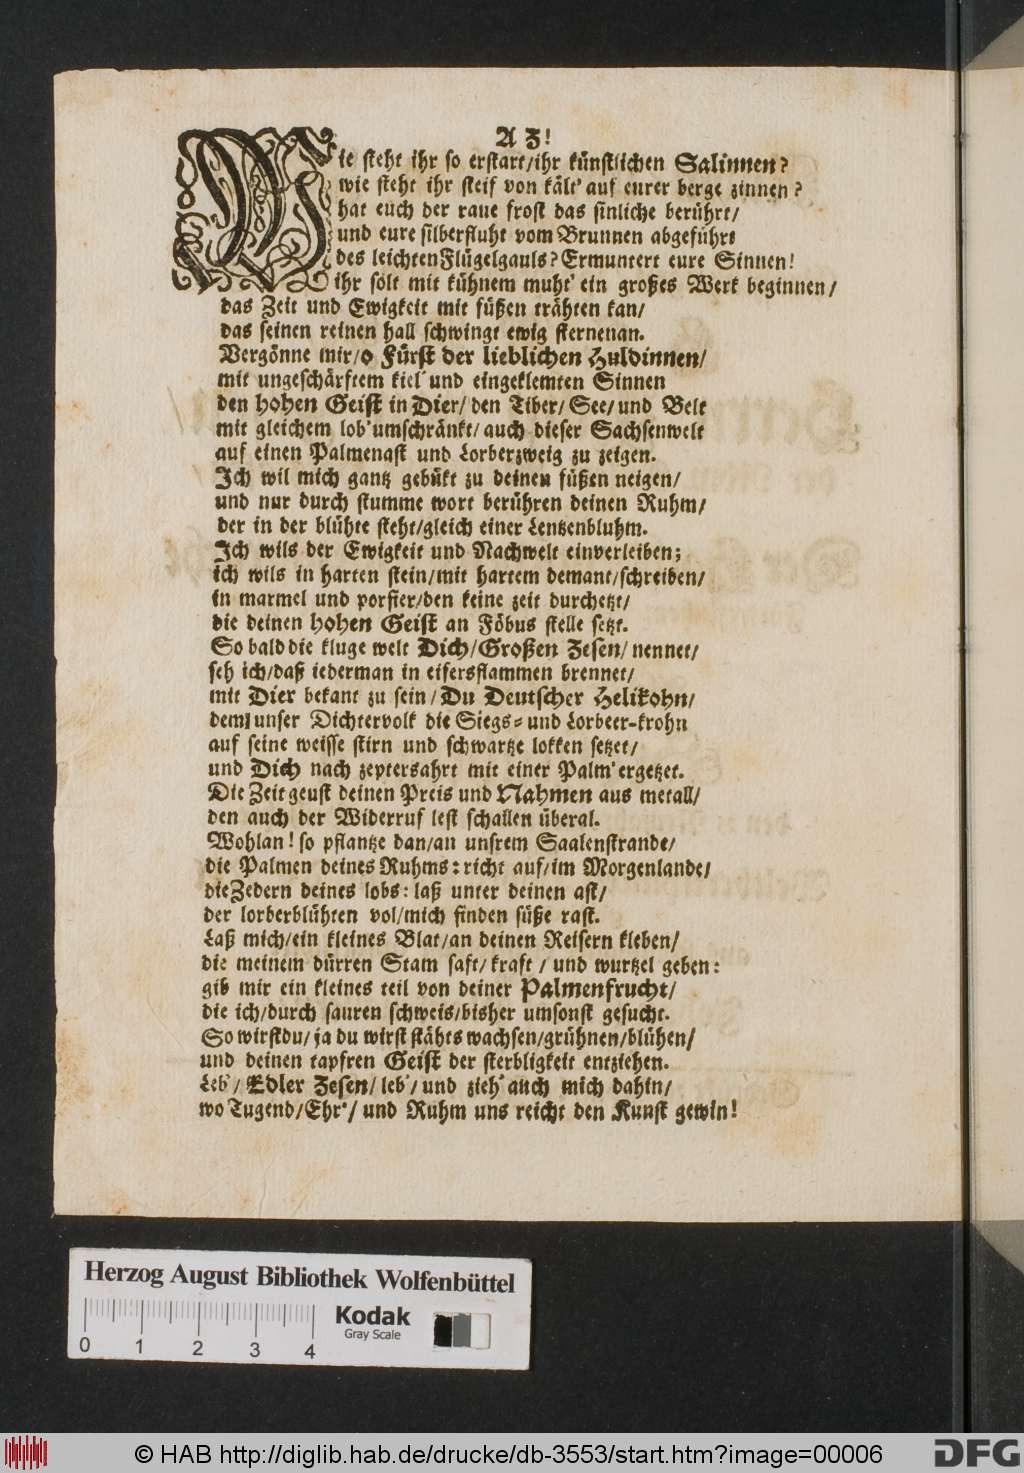 A Z!
Wie steht ihr so erstart/ihr künstlichen Salinnen?
wie steht ihr steif von kält' auf eurer berge zinnen?
hat euch der raue frost das sinliche berührt/
und eure silberfluht vom Brunnen abgeführt
des leichten Flügelgauls? Ermuntert eure Sinnen!
ihr solt mit kühnem muht' ein großes Werk beginnen/
das Zeit und Ewigkeit mit füßen trähten kan/
das seinen reinen hall schwingt ewig sternenan.
Vergönne mir/o Fürst der lieblichen Huldinnen/
mit ungeschärftem kiel' und eingeklemten Sinnen
den hohen Geist in Dier/ den Tiber/ See/ und Belt
mit gleichem lob' umschränkt/ auch dieser Sachsenwelt
auf einen Palmenast und Lorberzweig zu zeigen.
Ich wil mich gantz gebükt zu deinen füßen neigen/
und nur durch stumme wort berühren deinen Ruhm/
der in der blühte steht/gleich einer Lentzenbluhm.
Ich wils der Ewigkeit und Nachwelt einverleiben;
ich wils in harten stein/mit hartem demant/schreiben/
in marmel und porfier/den keine zeit durchetzt/
die deinen hohen Geist an Föbus stelle setzt.
So bald die kluge welt Dich/Großen Zesen/ nennet/
seh ich/daß iederman in eifersflammen brennet/
mit Dier bekant zu sein/ Du Deutscher Helikohn/
dem unser Dichtervolk die Siegs- und Lorbeer-krohn
auf seine weisse stirn und schwartze lokken setzet/
und Dich nach zeptersahrt mit einer Palm' ergetzet.
Die Zeit geust deinen Preis und Nahmen aus metall/
den auch der Widerruf lest schallen überal.
Wohlan! so pflantze dan/an unsrem Saalenstrande/
die Palmen deines Ruhms: richt auf/im Morgenlande/
die Zedern deines lobs: laß unter deinen ast/
der lorberblühten vol/mich finden süße rast.
Laß mich/ein kleines Blat/an deinen Reisern kleben/
die meinem dürren Stam saft/ kraft / und wurtzel geben:
gib mir ein kleines teil von deiner Palmenfrucht/
die ich/durch sauren schweis/bisher umsonst gesucht.
So wirstdu/ ja du wirst stähts wachsen/grühnen/blühen/
und deinen tapfren Geist der sterbligkeit entziehen.
Leb'/ Edler Zesen/ leb'/ und zieh' auch mich dahin/
wo Tugend/Ehr'/ und Ruhm uns reicht den Kunst gewin!
Herzog August Bibliothek Wolfenbüttel
Kodak
Gray Scale
0 1 2 3 4
© HAB http://diglib.hab.de/drucke/db-3553/start.htm?image=00006
DFG